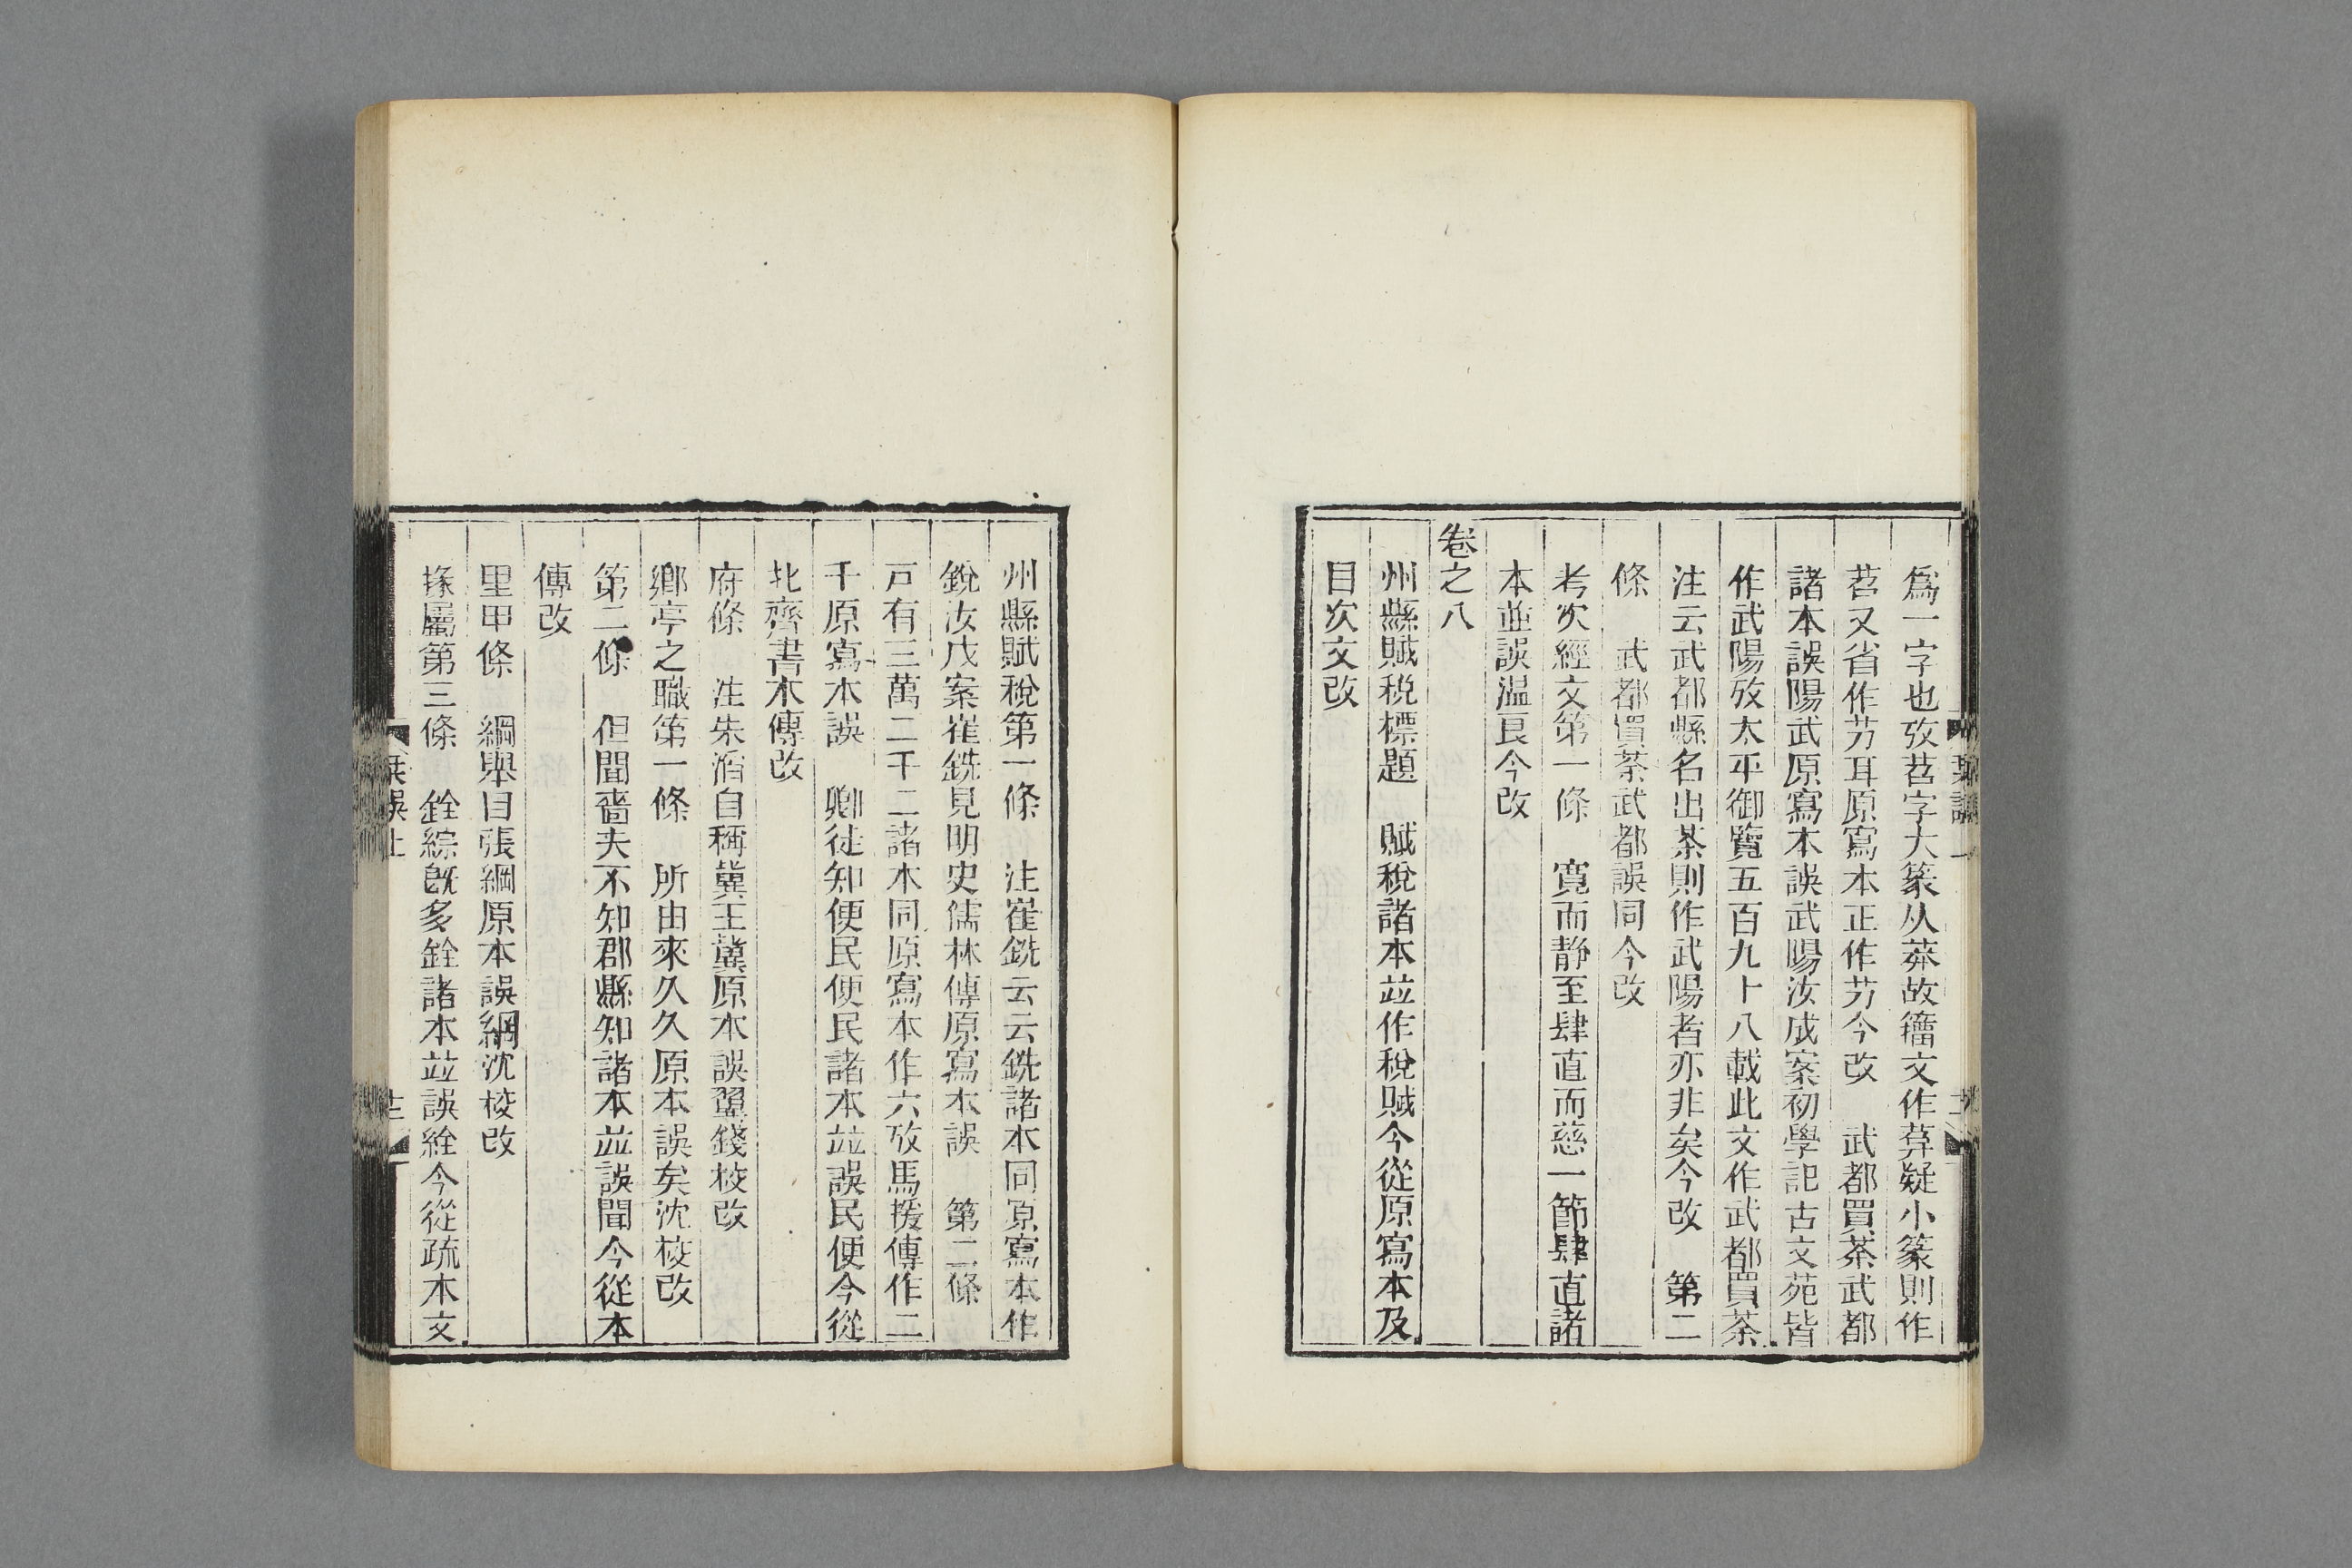 爲一字也攷荅字大篆从茻故籀文作䒞疑小篆則作
荅又省作艻耳原寫本正作艻今改　武都買茶武都
諸本誤陽武原寫本誤武陽汝成案初學記古文苑皆
作武陽攷太平御覽五百九十八載此文作武都買茶
注云武都縣名出茶則作武陽者亦非矣今改　第二
條　武都買茶武都誤同今改
考次經文第一條　寬而靜至肆直而慈一節肆直諸
本並誤溫良今改
卷之八
州縣賦稅標題　賦稅諸本竝作稅賦今從原寫本及
目次文改
州縣賦稅第一條　注崔銑云云銑諸本同原寫本作
銳汝成案崔銑見明史儒林傳原寫本誤　第二條
戸有三萬二千二諸本同原寫本作六攷馬援傳作二
千原寫本誤　鄉徒知便民便民諸本竝誤民便今從
北齊書本傳改
府條　注朱滔自稱冀王冀原本誤翼錢校改
鄉亭之職第一條　所由來久久原本誤矣沈校改
第二條　但聞嗇夫不知郡縣知諸本竝誤聞今從本
傳改
里甲條　綱舉目張綱原本誤網沈校改
掾屬第三條　銓綜旣多銓諸本竝誤絟今從疏本文